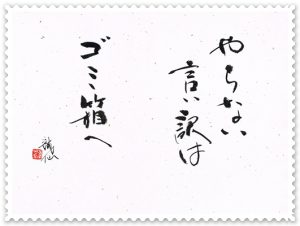 やらない
言い訳は
ゴミ箱へ